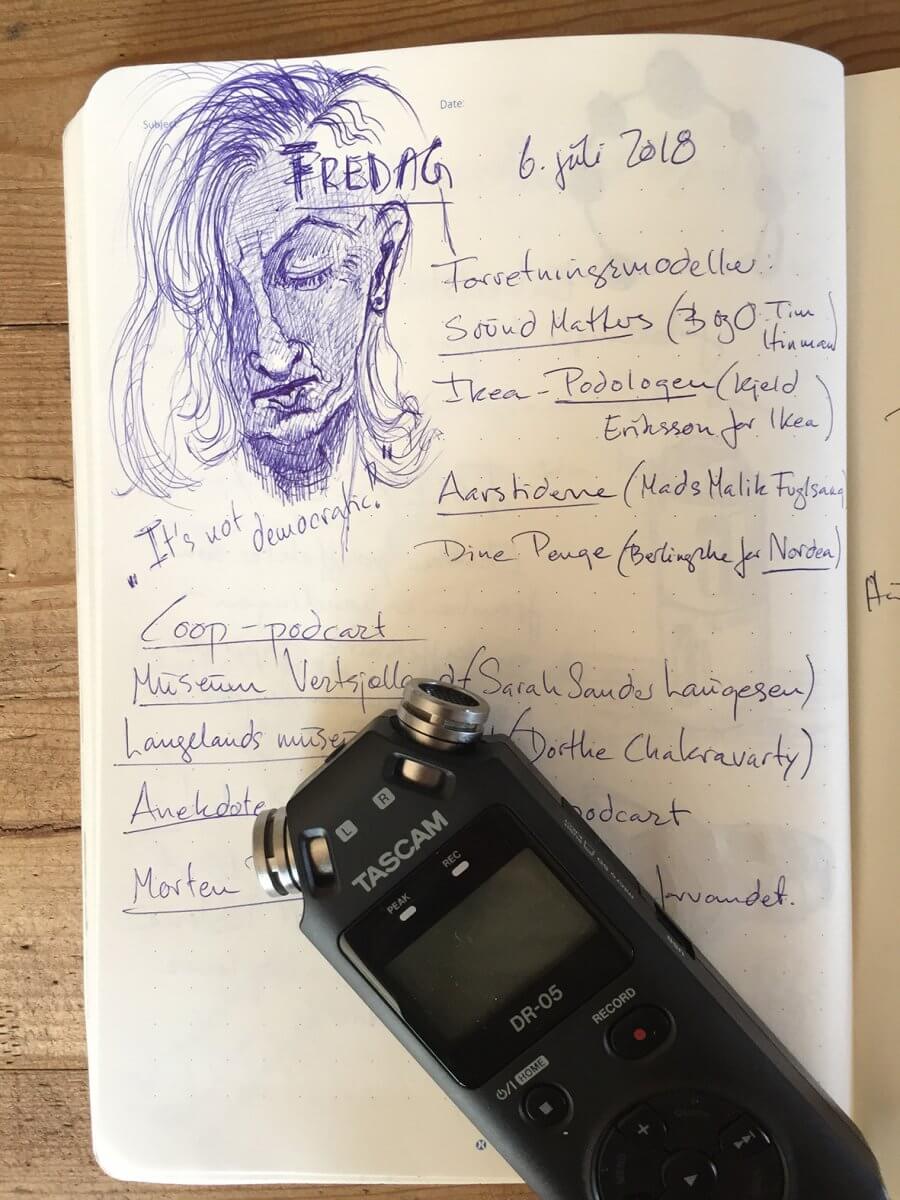 Subject:
Date:
FREDAG 6. juli 2018
Forretningsmodeller:
Sound Matters (B og O. Tim
Hinman)
Ikea-Podologen (Kjeld
Eriksson for Ikea)
Aarstiderne (Mads Malik Fuglsang
Dine Penge (Berlingske for Nordea)
"It's not democratic."
Coop-podcast
Museum Vestsjælland (Sarah Sander Laugesen)
Langelands muse (Dorthe Chakravarty)
Anekdote podcast
Morten farvandet.
L R
TASCAM
PEAK REC
DR-05
RECORD
HOME